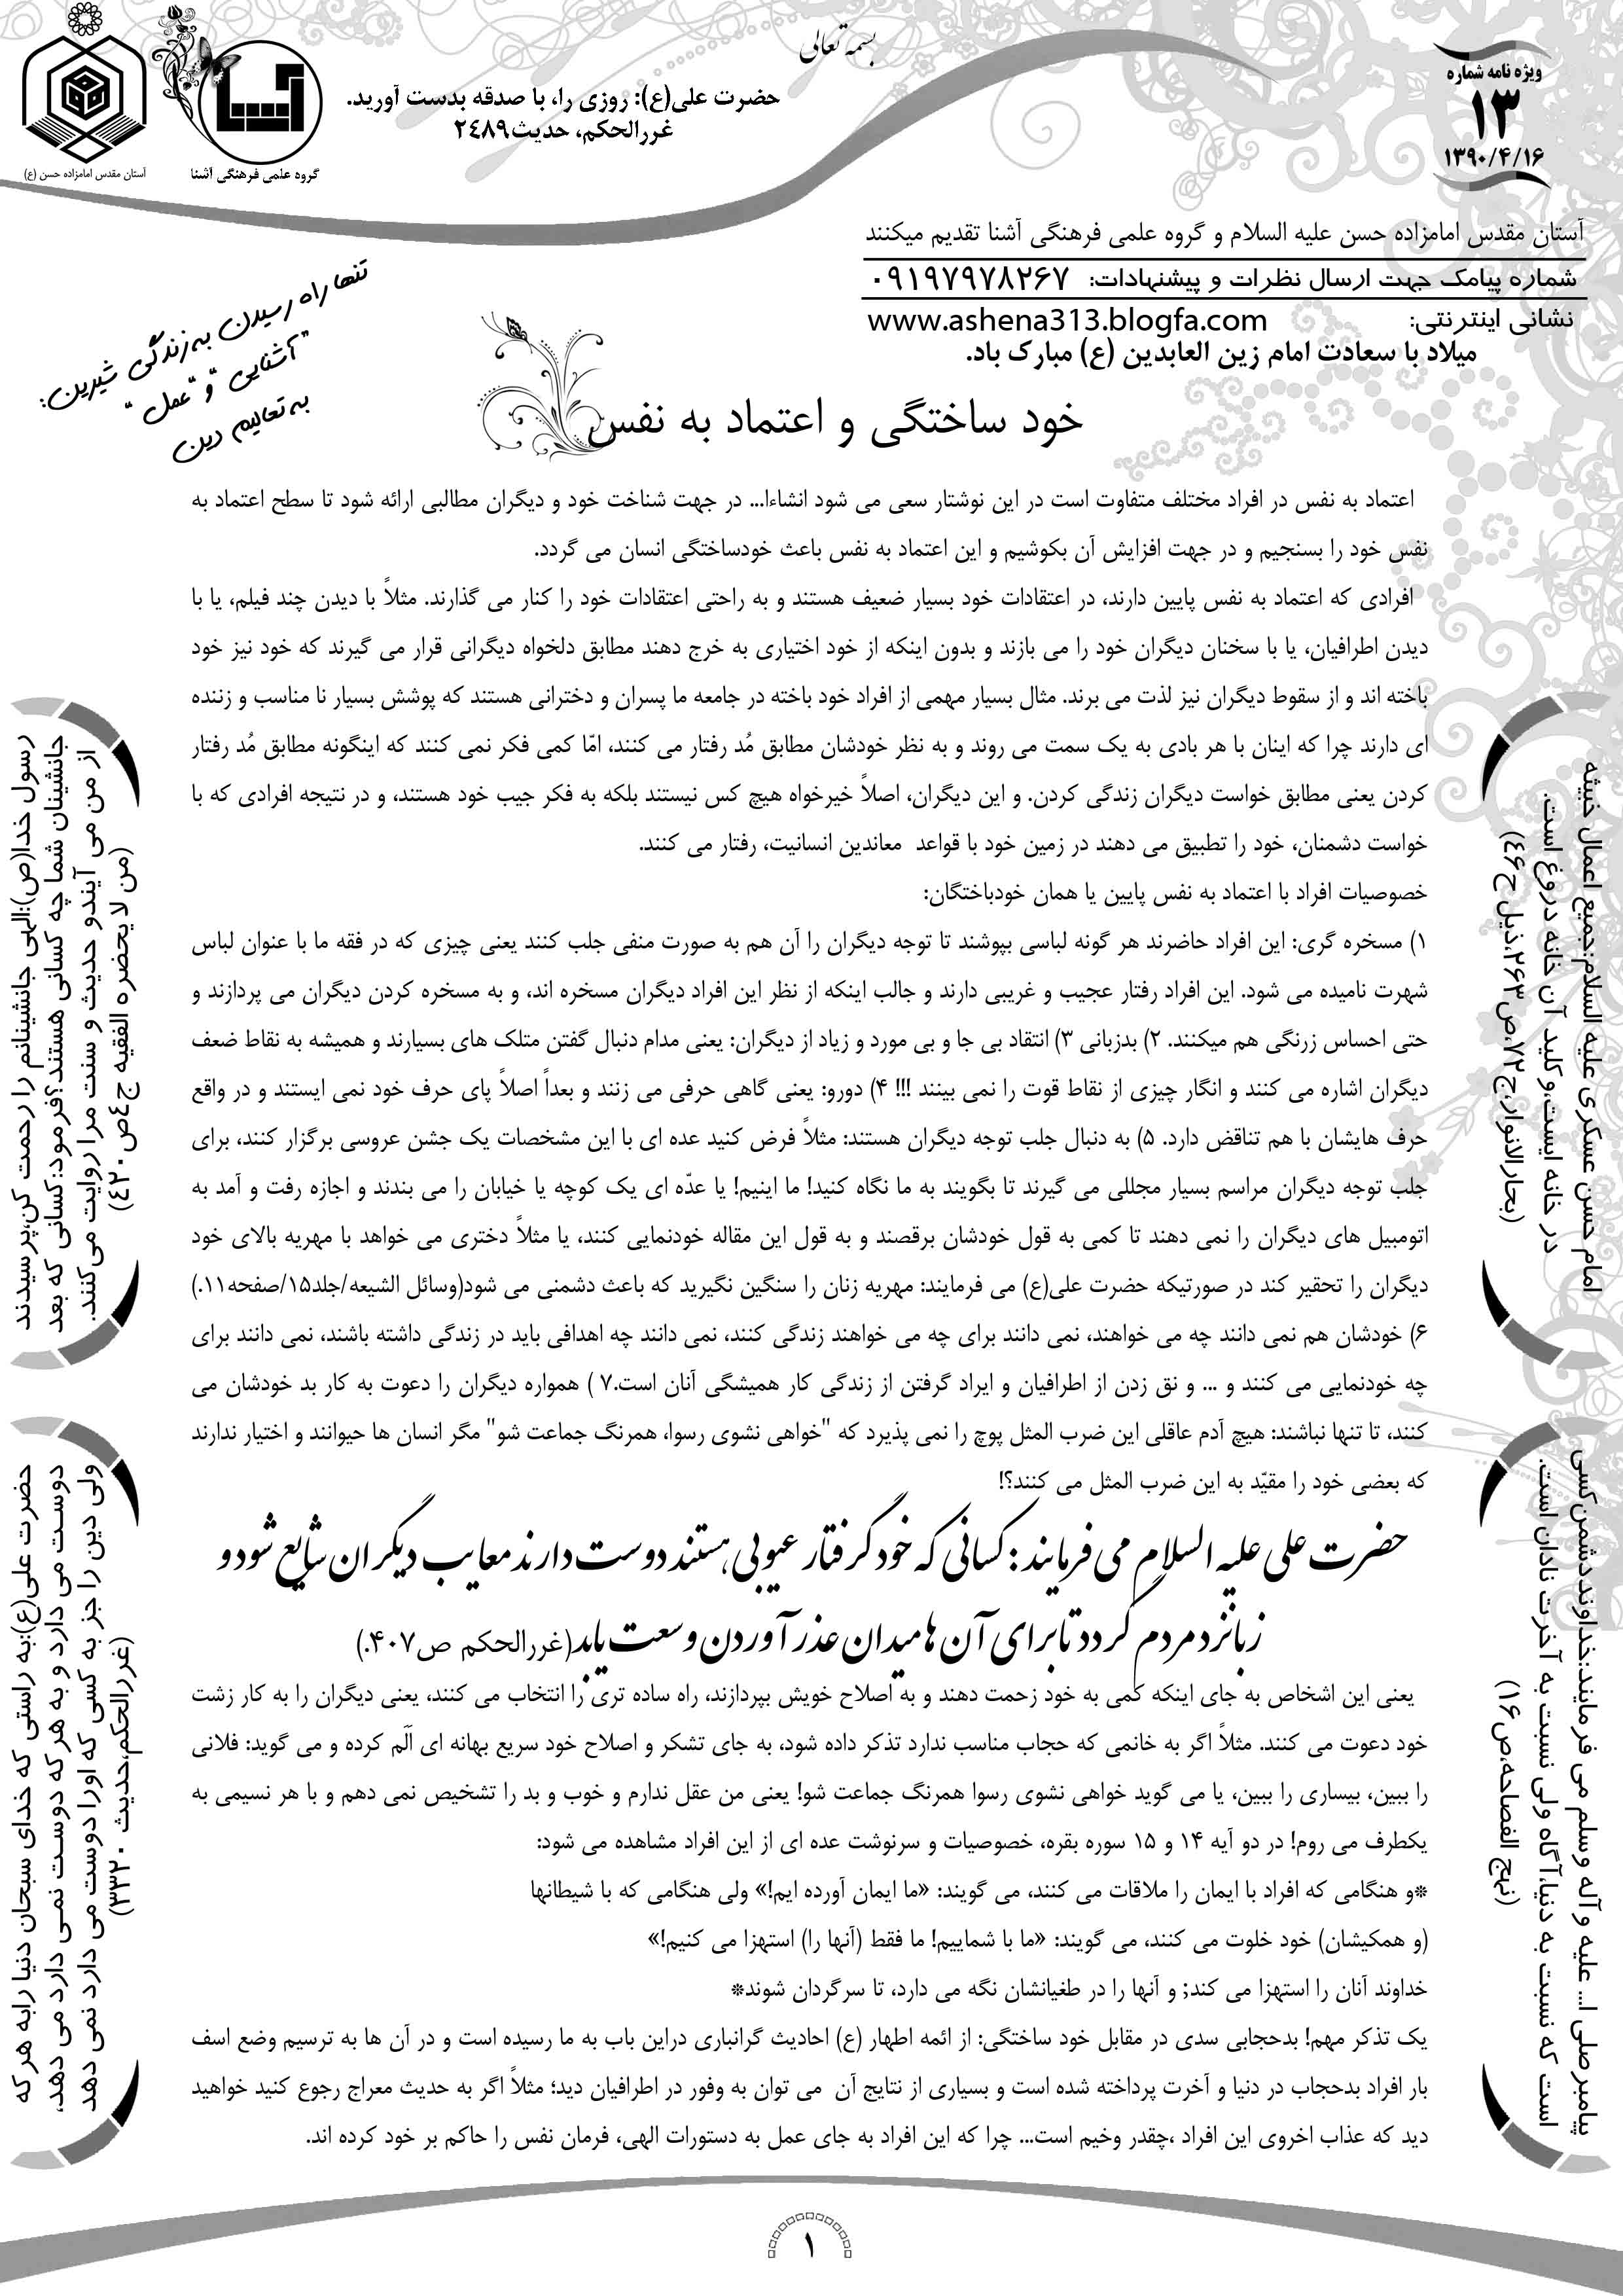 بسمه تعالی
ویژه نامه شماره
۱۳
۱۳۹۰/۴/۱۶
حضرت علی(ع): روزی را، با صدقه بدست آورید.
غررالحکم، حدیث۲٤۸۹
گروه علمی فرهنگی آشنا
آستان مقدس امامزاده حسن (ع)
آستان مقدس امامزاده حسن علیه السلام و گروه علمی فرهنگی آشنا تقدیم میکنند
شماره پیامک جهت ارسال نظرات و پیشنهادات: ۰۹۱۹۷۹۷۸۲۶۷
نشانی اینترنتی: www.ashena313.blogfa.com
میلاد با سعادت امام زین العابدین (ع) مبارک باد.
تنها راه رسیدن به زندگی شیرین:
"آشنایی" و "عمل"
به تعالیم دین
خود ساختگی و اعتماد به نفس
اعتماد به نفس در افراد مختلف متفاوت است در این نوشتار سعی می شود انشاءا... در جهت شناخت خود و دیگران مطالبی ارائه شود تا سطح اعتماد به
نفس خود را بسنجیم و در جهت افزایش آن بکوشیم و این اعتماد به نفس باعث خودساختگی انسان می گردد.
افرادی که اعتماد به نفس پایین دارند، در اعتقادات خود بسیار ضعیف هستند و به راحتی اعتقادات خود را کنار می گذارند. مثلاً با دیدن چند فیلم، یا با
دیدن اطرافیان، یا با سخنان دیگران خود را می بازند و بدون اینکه از خود اختیاری به خرج دهند مطابق دلخواه دیگرانی قرار می گیرند که خود نیز خود
باخته اند و از سقوط دیگران نیز لذت می برند. مثال بسیار مهمی از افراد خود باخته در جامعه ما پسران و دخترانی هستند که پوشش بسیار نا مناسب و زننده
ای دارند چرا که اینان با هر بادی به یک سمت می روند و به نظر خودشان مطابق مُد رفتار می کنند، امّا کمی فکر نمی کنند که اینگونه مطابق مُد رفتار
کردن یعنی مطابق خواست دیگران زندگی کردن. و این دیگران، اصلاً خیرخواه هیچ کس نیستند بلکه به فکر جیب خود هستند، و در نتیجه افرادی که با
خواست دشمنان، خود را تطبیق می دهند در زمین خود با قواعد معاندین انسانیت، رفتار می کنند.
خصوصیات افراد با اعتماد به نفس پایین یا همان خودباختگان:
۱) مسخره گری: این افراد حاضرند هر گونه لباسی بپوشند تا توجه دیگران را آن هم به صورت منفی جلب کنند یعنی چیزی که در فقه ما با عنوان لباس
شهرت نامیده می شود. این افراد رفتار عجیب و غریبی دارند و جالب اینکه از نظر این افراد دیگران مسخره اند، و به مسخره کردن دیگران می پردازند و
حتی احساس زرنگی هم میکنند. ۲) بدزبانی ۳) انتقاد بی جا و بی مورد و زیاد از دیگران: یعنی مدام دنبال گفتن متلک های بسیارند و همیشه به نقاط ضعف
دیگران اشاره می کنند و انگار چیزی از نقاط قوت را نمی بینند !!! ۴) دورو: یعنی گاهی حرفی می زنند و بعداً اصلاً پای حرف خود نمی ایستند و در واقع
حرف هایشان با هم تناقض دارد. ۵) به دنبال جلب توجه دیگران هستند: مثلاً فرض کنید عده ای با این مشخصات یک جشن عروسی برگزار کنند، برای
جلب توجه دیگران مراسم بسیار مجللی می گیرند تا بگویند به ما نگاه کنید! ما اینیم! یا عدّه ای یک کوچه یا خیابان را می بندند و اجازه رفت و آمد به
اتومبیل های دیگران را نمی دهند تا کمی به قول خودشان برقصند و به قول این مقاله خودنمایی کنند، یا مثلاً دختری می خواهد با مهریه بالای خود
دیگران را تحقیر کند در صورتیکه حضرت علی(ع) می فرمایند: مهریه زنان را سنگین نگیرید که باعث دشمنی می شود(وسائل الشیعه/جلد۱۵/صفحه۱۱.)
۶) خودشان هم نمی دانند چه می خواهند، نمی دانند برای چه می خواهند زندگی کنند، نمی دانند چه اهدافی باید در زندگی داشته باشند، نمی دانند برای
چه خودنمایی می کنند و ... و نق زدن از اطرافیان و ایراد گرفتن از زندگی کار همیشگی آنان است.۷ ) همواره دیگران را دعوت به کار بد خودشان می
کنند، تا تنها نباشند: هیچ آدم عاقلی این ضرب المثل پوچ را نمی پذیرد که "خواهی نشوی رسوا، همرنگ جماعت شو" مگر انسان ها حیوانند و اختیار ندارند
که بعضی خود را مقیّد به این ضرب المثل می کنند؟!
حضرت علی علیه السلام می فرمایند: کسانی که خود گرفتار عیوبی هستند دوست دارند معایب دیگران شایع شود و
زبانزد مردم گردد تا برای آن ها میدان عذر آوردن وسعت یابد(غررالحکم ص۴۰۷.)
یعنی این اشخاص به جای اینکه کمی به خود زحمت دهند و به اصلاح خویش بپردازند، راه ساده تری را انتخاب می کنند، یعنی دیگران را به کار زشت
خود دعوت می کنند. مثلاً اگر به خانمی که حجاب مناسب ندارد تذکر داده شود، به جای تشکر و اصلاح خود سریع بهانه ای آلَم کرده و می گوید: فلانی
را ببین، بیساری را ببین، یا می گوید خواهی نشوی رسوا همرنگ جماعت شو! یعنی من عقل ندارم و خوب و بد را تشخیص نمی دهم و با هر نسیمی به
یکطرف می روم! در دو آیه ۱۴ و ۱۵ سوره بقره، خصوصیات و سرنوشت عده ای از این افراد مشاهده می شود:
*و هنگامی که افراد با ایمان را ملاقات می کنند، می گویند: «ما ایمان آورده ایم!» ولی هنگامی که با شیطانها
(و همکیشان) خود خلوت می کنند، می گویند: «ما با شماییم! ما فقط (آنها را) استهزا می کنیم!»
خداوند آنان را استهزا می کند; و آنها را در طغیانشان نگه می دارد، تا سرگردان شوند*
یک تذکر مهم! بدحجابی سدی در مقابل خود ساختگی: از ائمه اطهار (ع) احادیث گرانباری دراین باب به ما رسیده است و در آن ها به ترسیم وضع اسف
بار افراد بدحجاب در دنیا و آخرت پرداخته شده است و بسیاری از نتایج آن می توان به وفور در اطرافیان دید؛ مثلاً اگر به حدیث معراج رجوع کنید خواهید
دید که عذاب اخروی این افراد ،چقدر وخیم است... چرا که این افراد به جای عمل به دستورات الهی، فرمان نفس را حاکم بر خود کرده اند.
امام حسن عسکری علیه السلام:جمیع اعمال خبیثه
در خانه ایست،و کلید آن خانه دروغ است.
(بحارالانوار،ج۷۲،ص۲۶۳،ذیل ح۴۶)
پیامبرصلی ا... علیه و آله وسلم می فرمایند:خداونددشمن کسی
است که نسبت به دنیا،آگاه ولی نسبت به آخرت نادان است.
(نهج الفصاحه،ص۱۶)
رسول خدا(ص):الهی جانشینانم را رحمت کن،پرسیدند
جانشینان شما چه کسانی هستند؟فرمود:کسانی که بعد
از من می آیندو حدیث و سنت مرا روایت می‌کنند.
(من لا یحضره الفقیه ج٤ص٤۲۰)
حضرت علی(ع):به راستی که خدای سبحان دنیا رابه هر که
دوست می دارد و به هر که دوست نمی دارد می دهد،
ولی دین را جز به کسی که اورا دوست می دارد نمی دهد
(غررالحکم،حدیث ۳۳۲۰)
۱